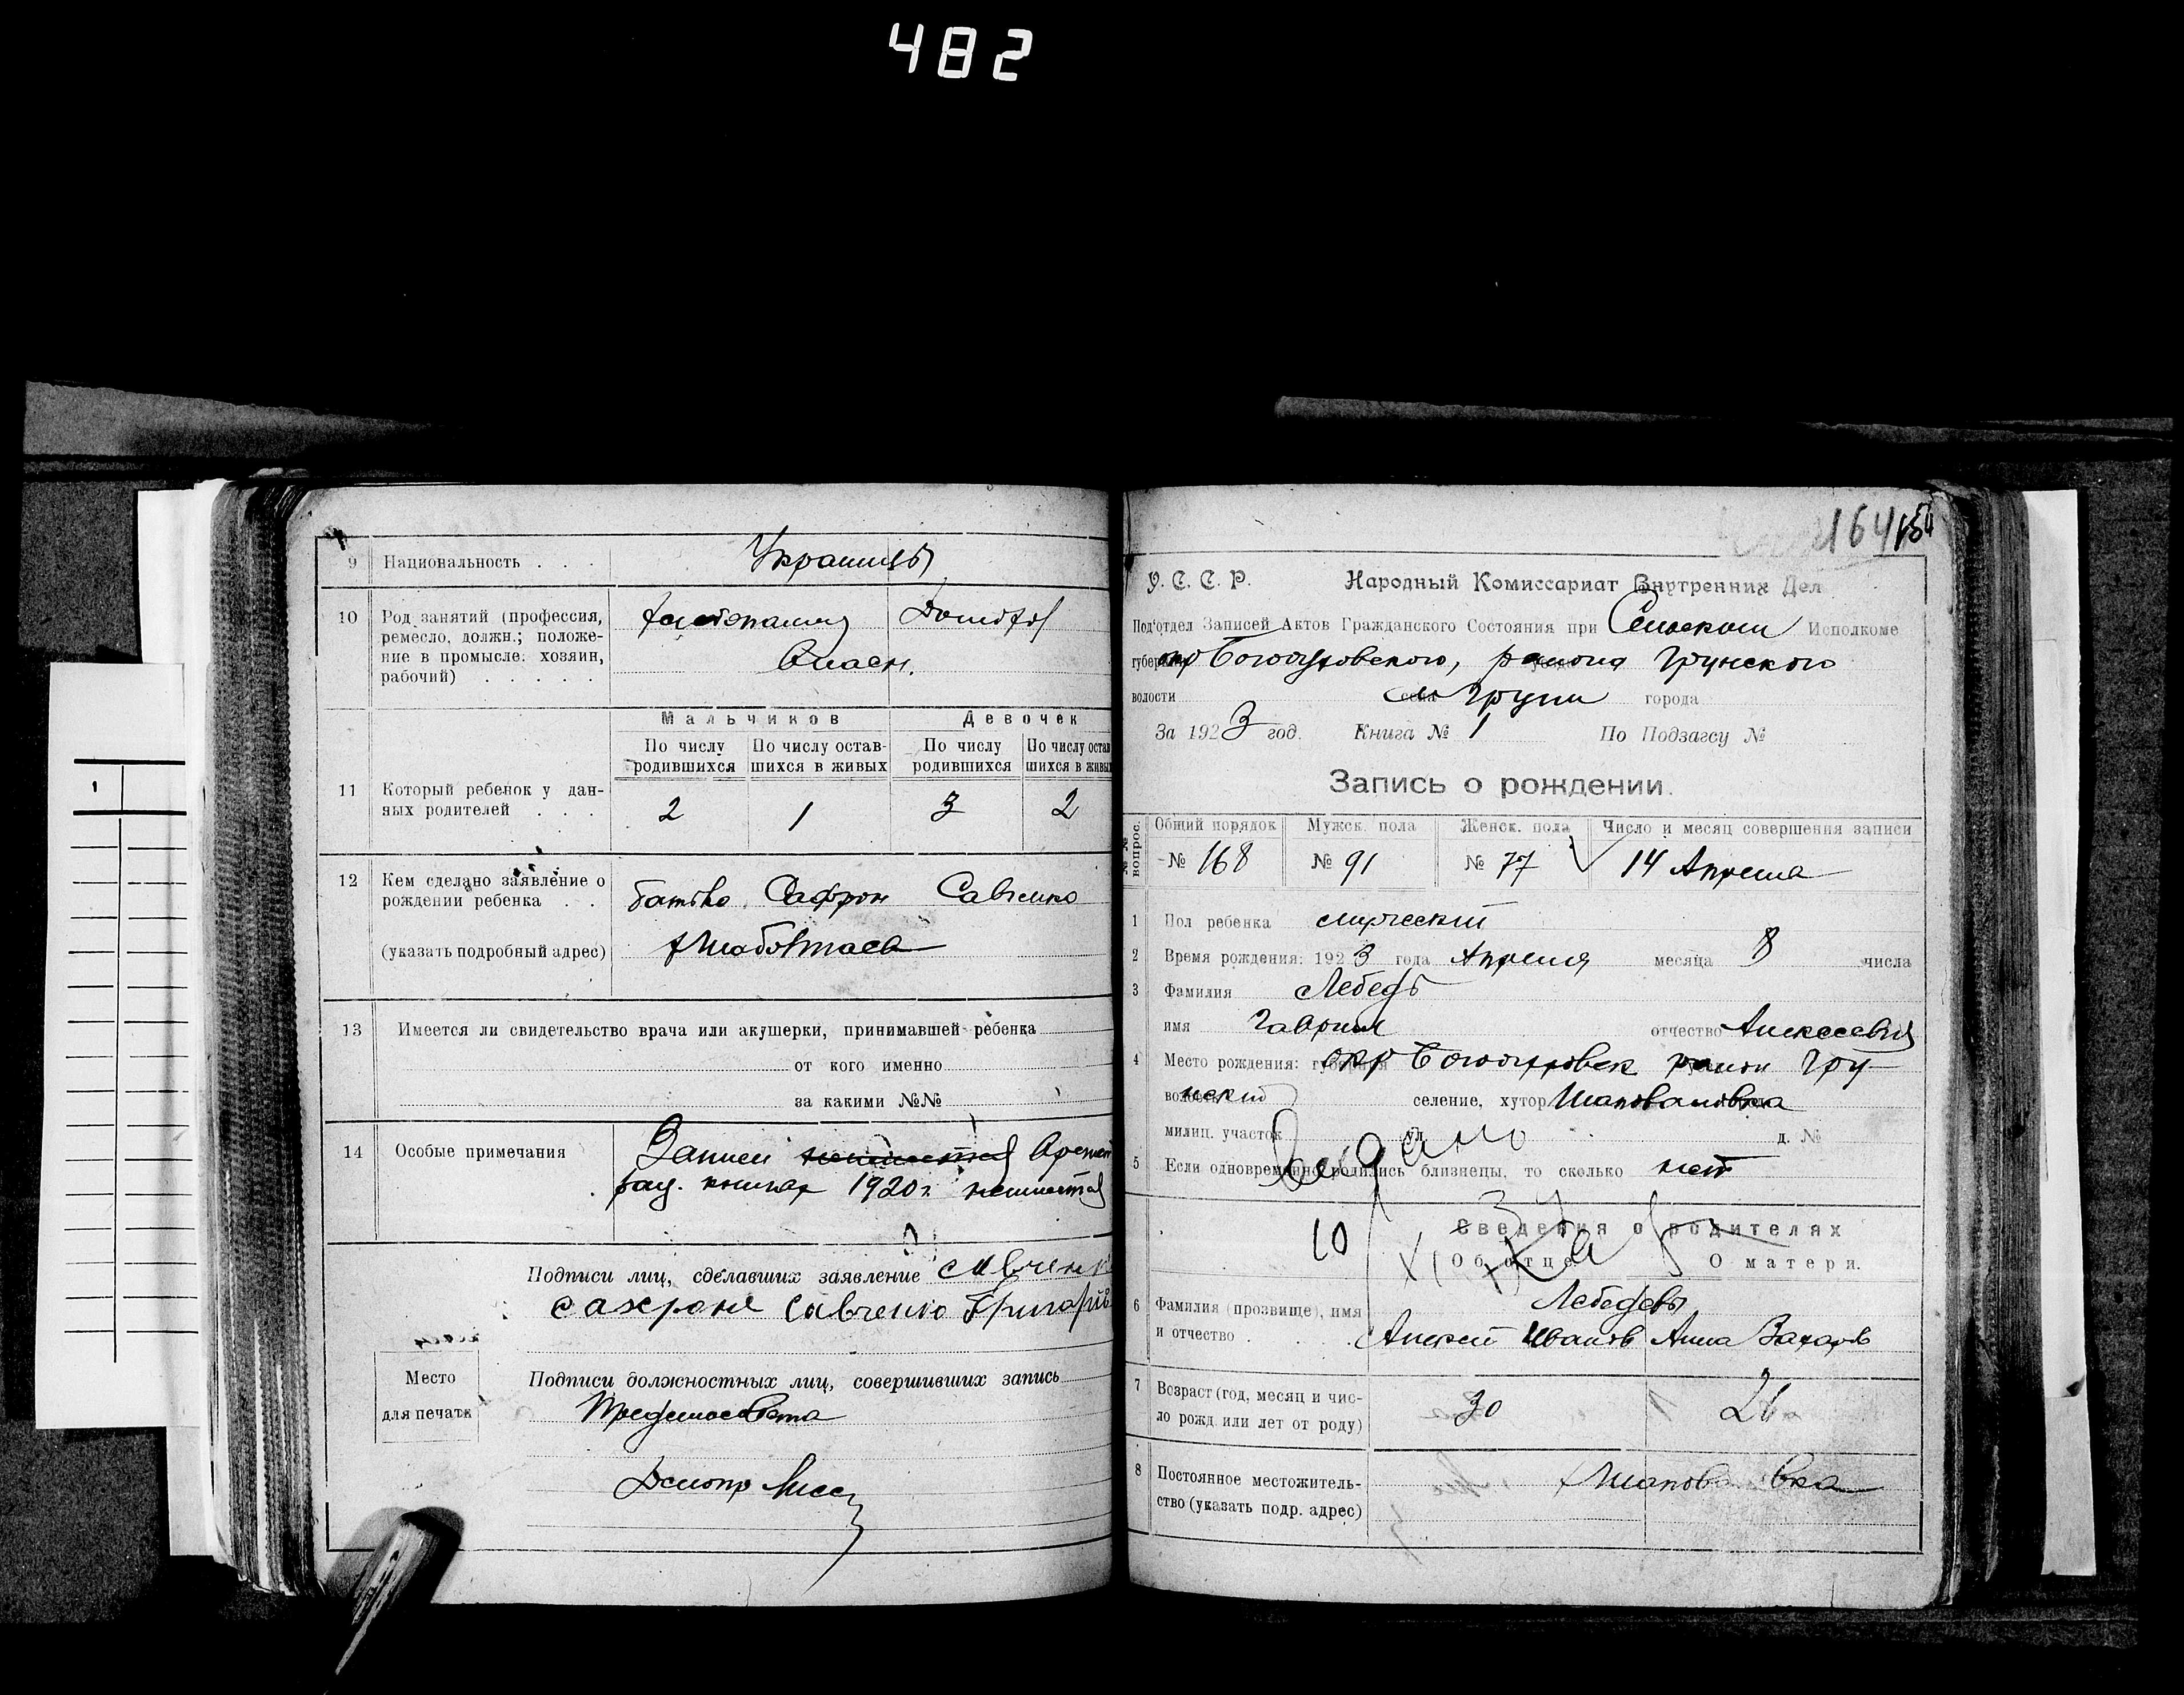 482
9 Национальность . . . Украинцы
10 Род занятий (профессия, ремесло, должн.; положение в промысле: хозяин, рабочий) . . . . .
Мальчиков Девочек
По числу родившихся По числу оставшихся в живых По числу родившихся По числу остав шихся в живы
11 Который ребенок у данных родителей . . . 2 1 3 2
12 Кем сделано заявление о рождении ребенка . . батько Сафрон Савченко
(указать подробный адрес)
13 Имеется ли свидетельство врача или акушерки, принимавшей ребенка
от кого именно
за какими №№
14 Особые примечания Записи
1920 г.
Подписи лиц, сделавших заявление
Савченко
Место для печати
Подписи должностных лиц, совершивших запись
164 150
У. С. С. Р. Народный Комиссариат Внутренних Дел
Под'отдел Записей Актов Гражданского Состояния при Сельском Исполкоме
окр Богодуховского, района Грунского
волости село Груни города
За 1923 год. Книга № 1 По Подзагсу №
Запись о рождении.
№№ вопрос. Общий порядок Мужск. пола Женск. пола Число и месяц совершения записи
№ 168 № 91 № 77 14 Апреля
1 Пол ребенка мужеский
2 Время рождения: 1923 года Апреля месяца 8 числа
3 Фамилия Лебедь
имя Гавриил отчество Алексеевич
4 Место рождения: губерния окр Богодуховск район Гру-
нский селение, хутор Шаповаловка
милиц. участок ул. д. №
Видано
5 Если одновременно родились близнецы, то сколько нет
10 XI
Сведения о родителях
Об отце О матери.
6 Фамилия (прозвище), имя и отчество . Лебедевы
Алексей Иванов Анна Захаров
7 Возраст (год, месяц и число рожд. или лет от роду) 30
8 Постоянное местожительство (указать подр. адрес)
1